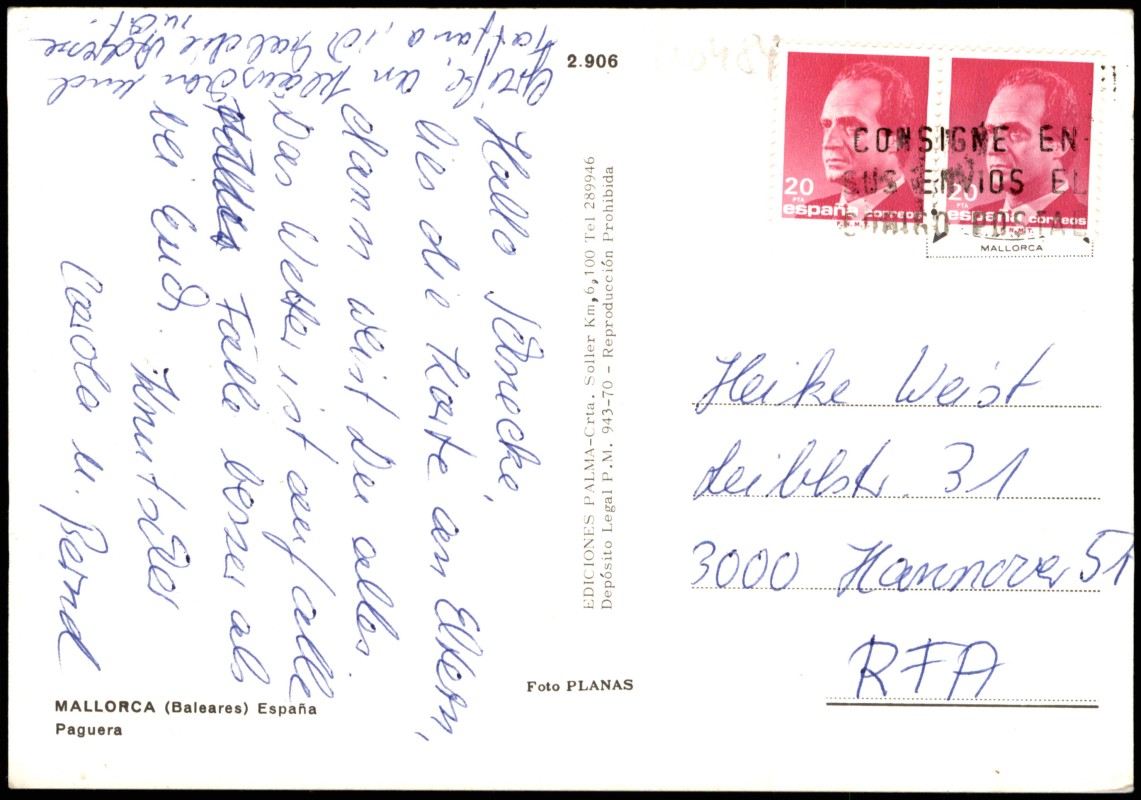 Hallo Schnecke,
lies die Karte an Eltern,
dann weist Du alles.
Das Wetter ist auf alle
Fälle besser als
bei Euch.
Carola u. Bernd
Grüße an und
ich hab die Adresse
nicht
2.906
EDICIONES PALMA-Crta. Soller Km,6,100 Tel 289946
Depósito Legal P.M. 943-70 - Reproducción Prohibida
Foto PLANAS
MALLORCA (Baleares) España
Paguera
20 PTA
españa correos
F.N.M.T.
20 PTA
españa correos
F.N.M.T.
CONSIGNE EN
SUS ENVIOS EL
CODIGO POSTAL
MALLORCA
Heike Weist
Leiblstr. 31
3000 Hannover 51
RFA